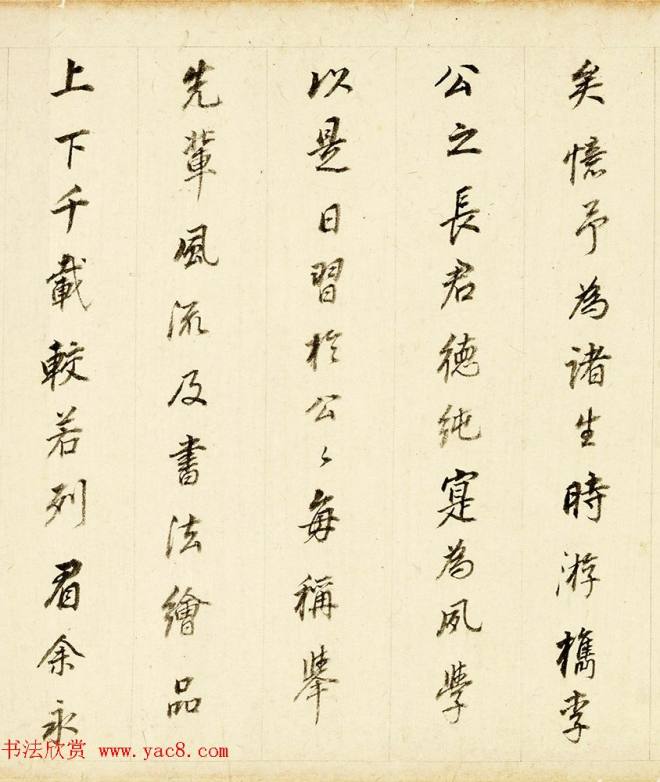 矣憶予為諸生時游檇李
公之長君德純寔為夙學
以是日習於公〻每稱舉
先輩風流及書法繪品
上下千載較若列眉余永
书法欣赏 www.yac8.com